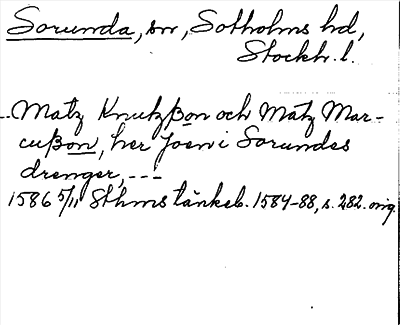 Sorunda, sn, Sotholms hd,
Stockh. l.
--Matz Knutzßon och Matz Mar-
cußon, her Joen i Sorundes
drenger, ---
1586 5/11 Sthms tänkeb. 1584-88, s. 282. orig.